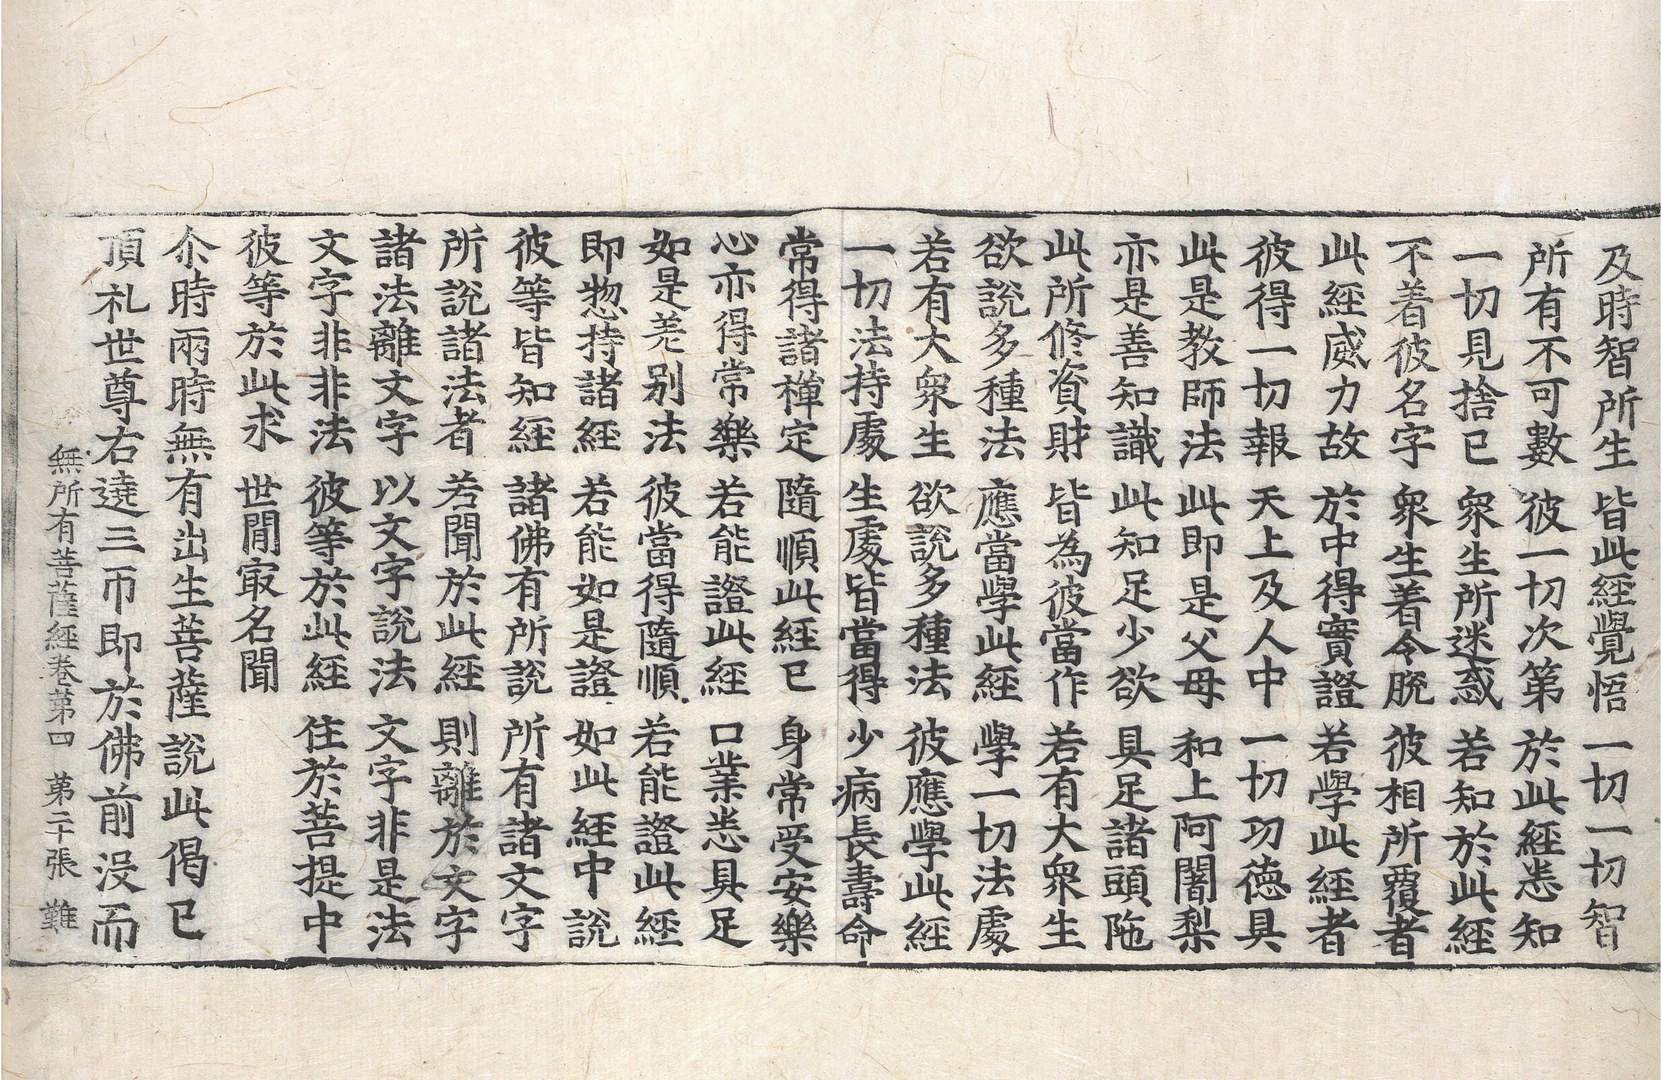 及時智所生 皆此經覺悟 一切一切智
所有不可數 彼一切次第 於此經悉知
一切見捨已 衆生所迷惑 若知於此經
不着彼名字 衆生着令脫 彼相所覆者
此經威力故 於中得實證 若學此經者
彼得一切報 天上及人中 一切功德具
此是教師法 此即是父母 和上阿闍梨
亦是善知識 此知足少欲 具足諸頭陁
此所修資財 皆為彼當作 若有大衆生
欲說多種法 應當學此經 學一切法處
若有大衆生 欲說多種法 彼應學此經
一切法持處 生處皆當得 少病長壽命
常得諸禪定 隨順此經已 身常受安樂
心亦得常樂 若能證此經 口業悉具足
如是差别法 彼當得隨順 若能證此經
即惣持諸經 若能如是證 如此經中說
彼等皆知經 諸佛有所說 所有諸文字
所說諸法者 若聞於此經 則離於文字
諸法離文字 以文字說法 文字非是法
文字非非法 彼等於此經 住於菩提中
彼等於此求 世間㝡名聞
尒時兩時無有出生菩薩說此偈已
頂礼世尊右遶三帀即於佛前沒而
無所有菩薩經卷第四 第二十張 難